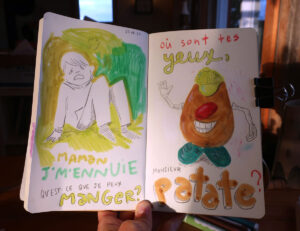 MAMAN
J'M'ENNUIE
QU'EST CE QUE JE PEUX
MANGER?
OÙ SONT TES
YEUX,
MONSIEUR
PATATE?